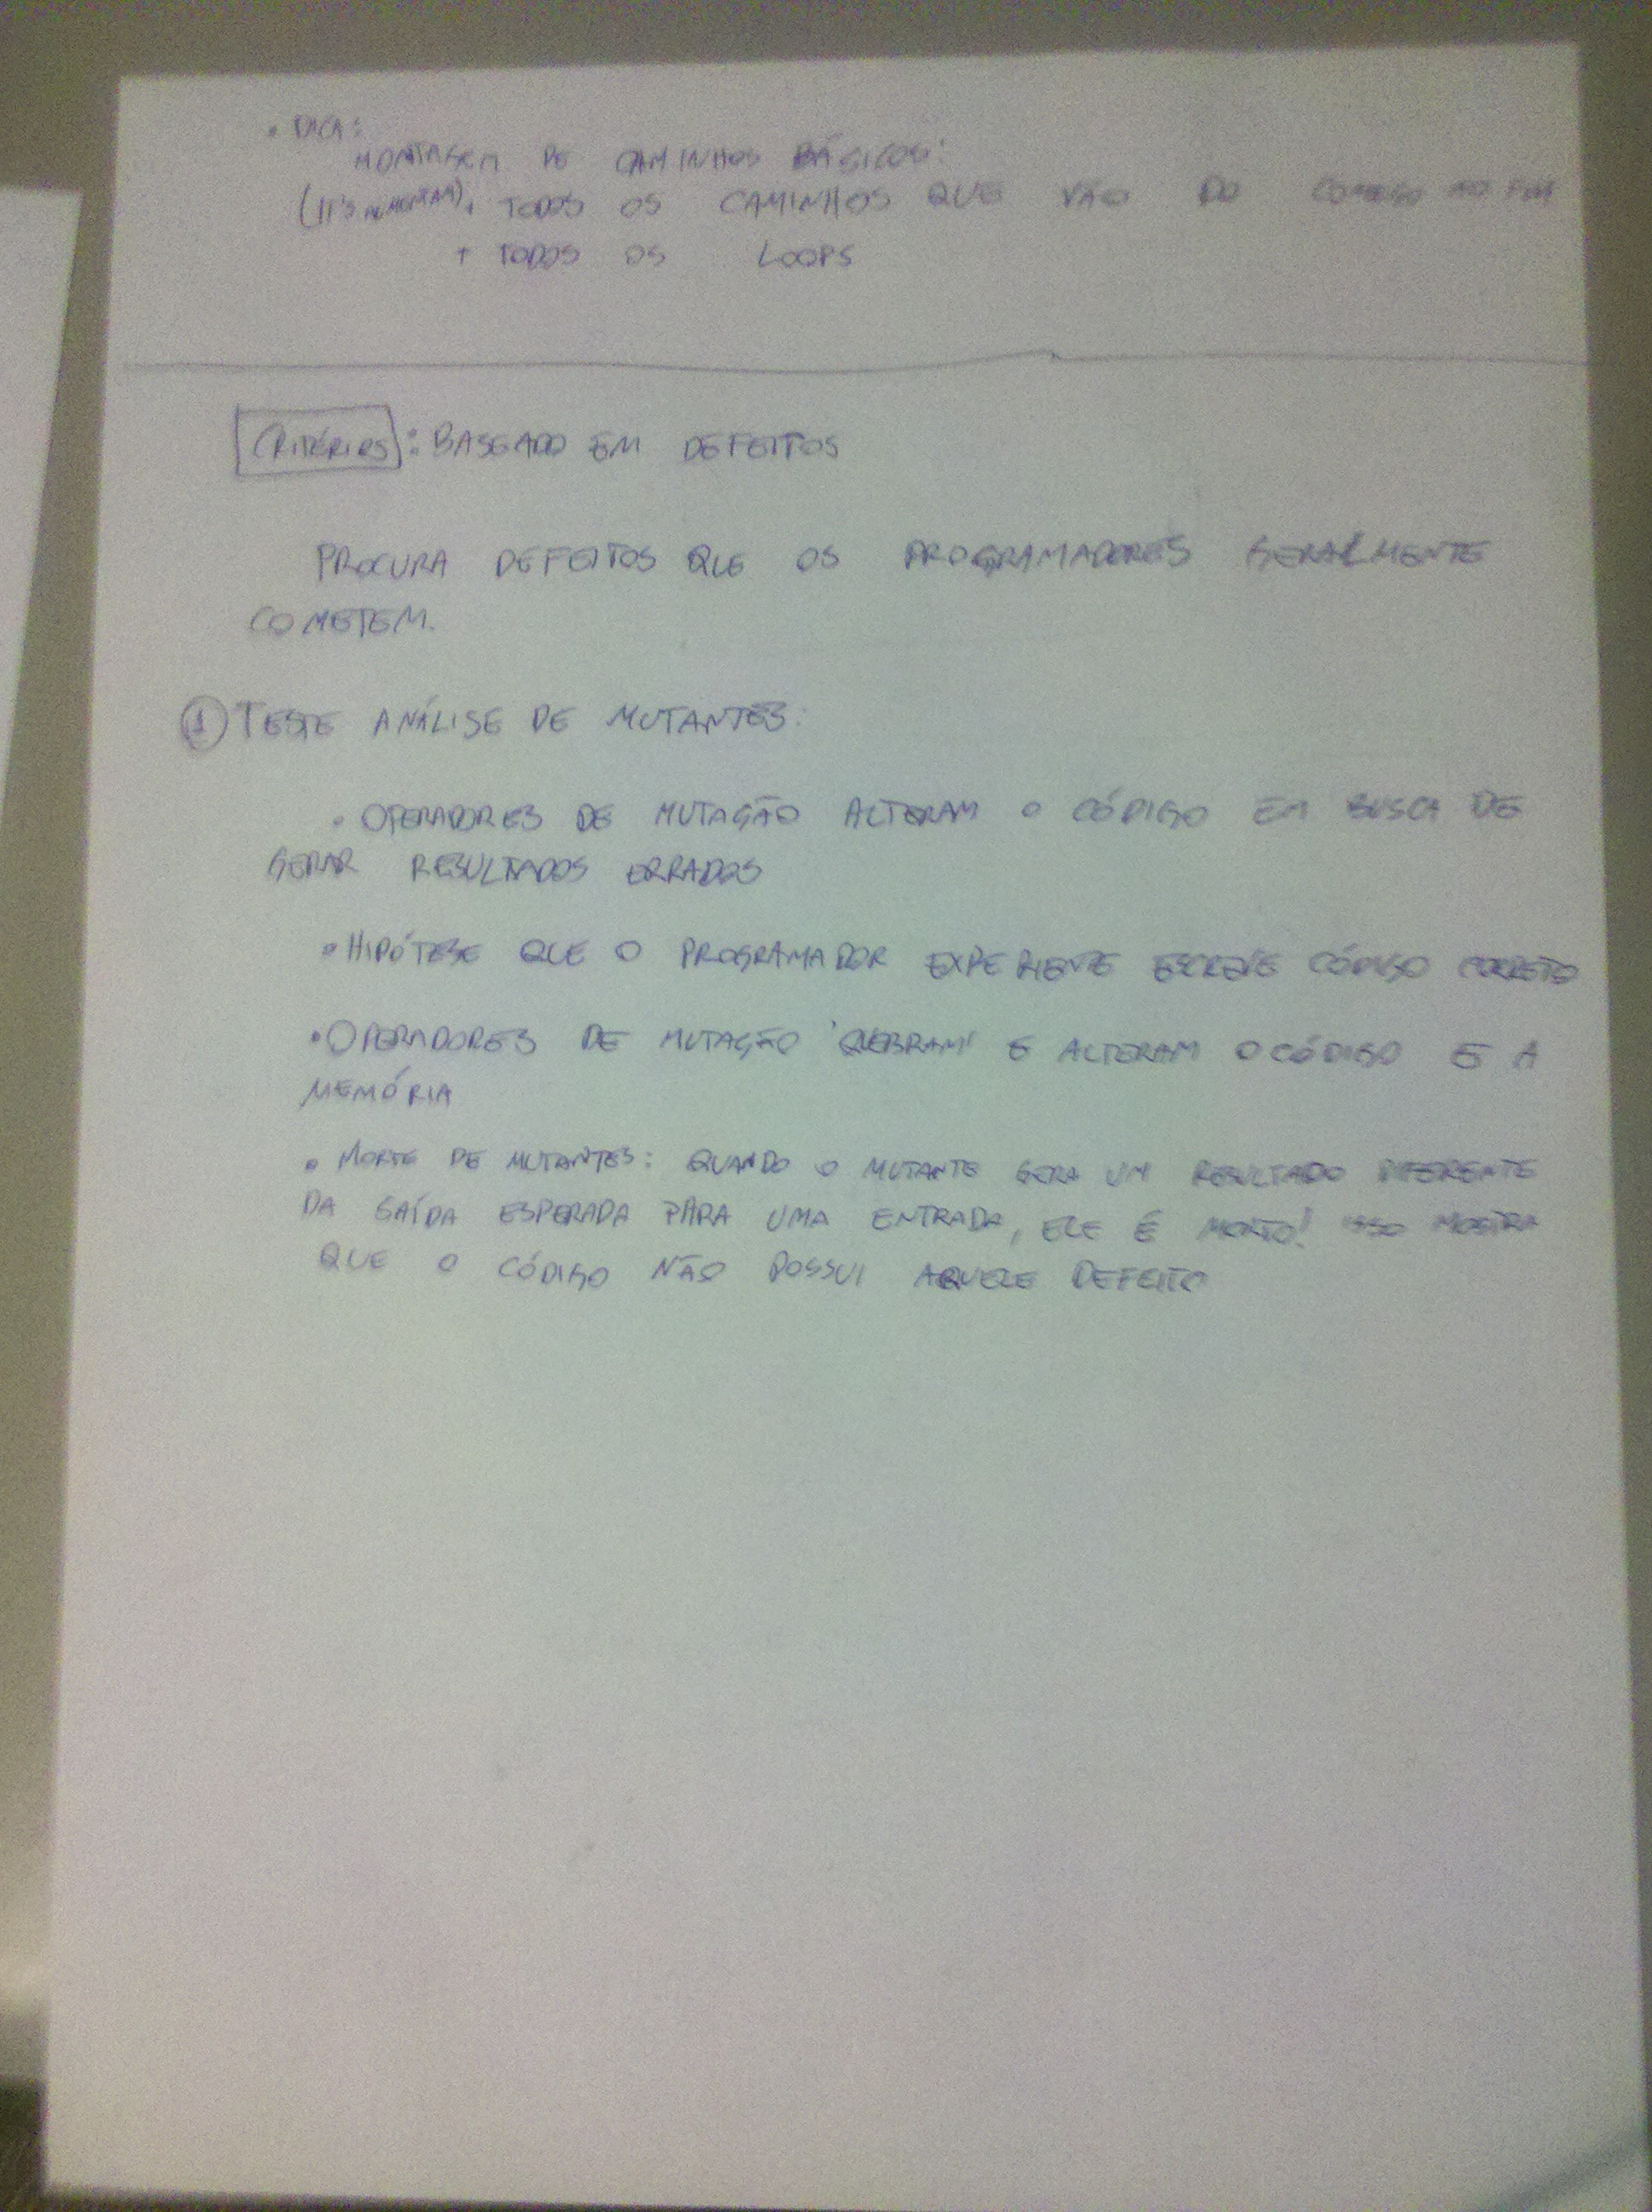 • DICA:
MONTAGEM DE CAMINHOS BÁSICOS:
(IF'S AUMENTAM) + TODOS OS CAMINHOS QUE VÃO DO COMEÇO AO FIM
+ TODOS OS LOOPS
CRITÉRIOS: BASEADO EM DEFEITOS
PROCURA DEFEITOS QUE OS PROGRAMADORES GERALMENTE
COMETEM.
① TESTE ANÁLISE DE MUTANTES:
• OPERADORES DE MUTAÇÃO ALTERAM O CÓDIGO EM BUSCA DE
GERAR RESULTADOS ERRADOS
• HIPÓTESE QUE O PROGRAMADOR EXPERIENTE ESCREVE CÓDIGO CORRETO
• OPERADORES DE MUTAÇÃO 'QUEBRAM' E ALTERAM O CÓDIGO E A
MEMÓRIA
• MORTE DE MUTANTES: QUANDO O MUTANTE GERA UM RESULTADO DIFERENTE
DA SAÍDA ESPERADA PARA UMA ENTRADA, ELE É MORTO! ISSO MOSTRA
QUE O CÓDIGO NÃO POSSUI AQUELE DEFEITO